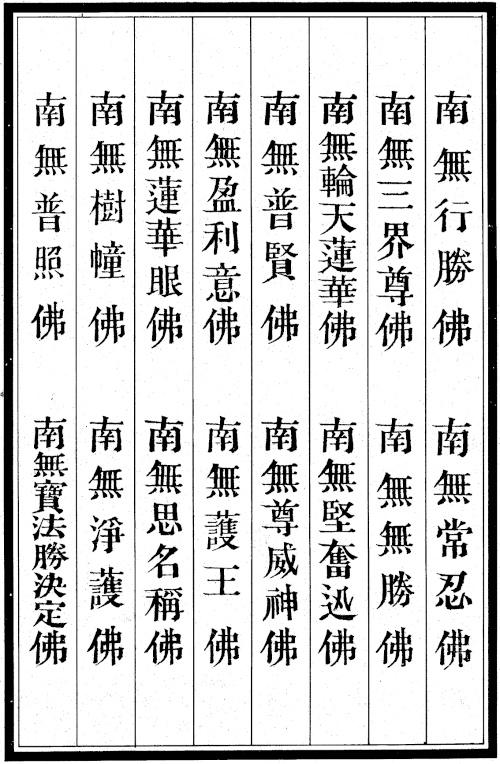 南無行勝佛 南無常忍佛
南無三界尊佛 南無無勝佛
南無輪天蓮華佛 南無堅奮迅佛
南無普賢佛 南無尊威神佛
南無盈利意佛 南無護王佛
南無蓮華眼佛 南無思名稱佛
南無樹幢佛 南無淨護佛
南無普照佛 南無寶法勝決定佛